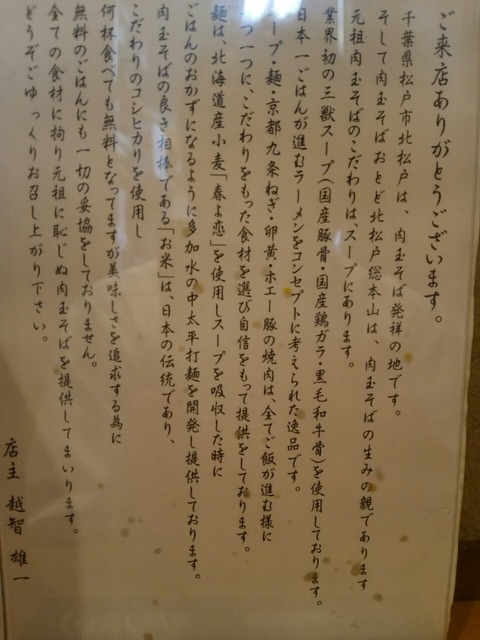 ご来店ありがとうございます。
千葉県松戸市北松戸は、肉玉そば発祥の地です。
そして肉玉そばおとど北松戸総本山は、肉玉そばの生みの親であります
元祖肉玉そばのこだわりは、スープにあります。
業界初の三獣スープ(国産豚骨・国産鶏ガラ・黒毛和牛骨)を使用しております。
日本一ごはんが進むラーメンをコンセプトに考えられた逸品です。
ープ・麺・京都九条ねぎ・卵黄・ホエー豚の焼肉は、全てご飯が進む様に
つ一つに、こだわりをもった食材を選び自信をもって提供をしております。
麺は、北海道産小麦「春よ恋」を使用しスープを吸収した時に
ごはんのおかずになるように多加水の中太平打麺を開発し提供しております。
肉玉そばの良き相棒である「お米」は、日本の伝統であり、
こだわりのコシヒカリを使用し
何杯食べても無料となってますが美味しさを追求する為に
無料のごはんにも一切の妥協をしておりません。
全ての食材に拘り元祖に恥じぬ肉玉そばを提供してまいります。
どうぞごゆっくりお召し上がり下さい。
店主 越智 雄一